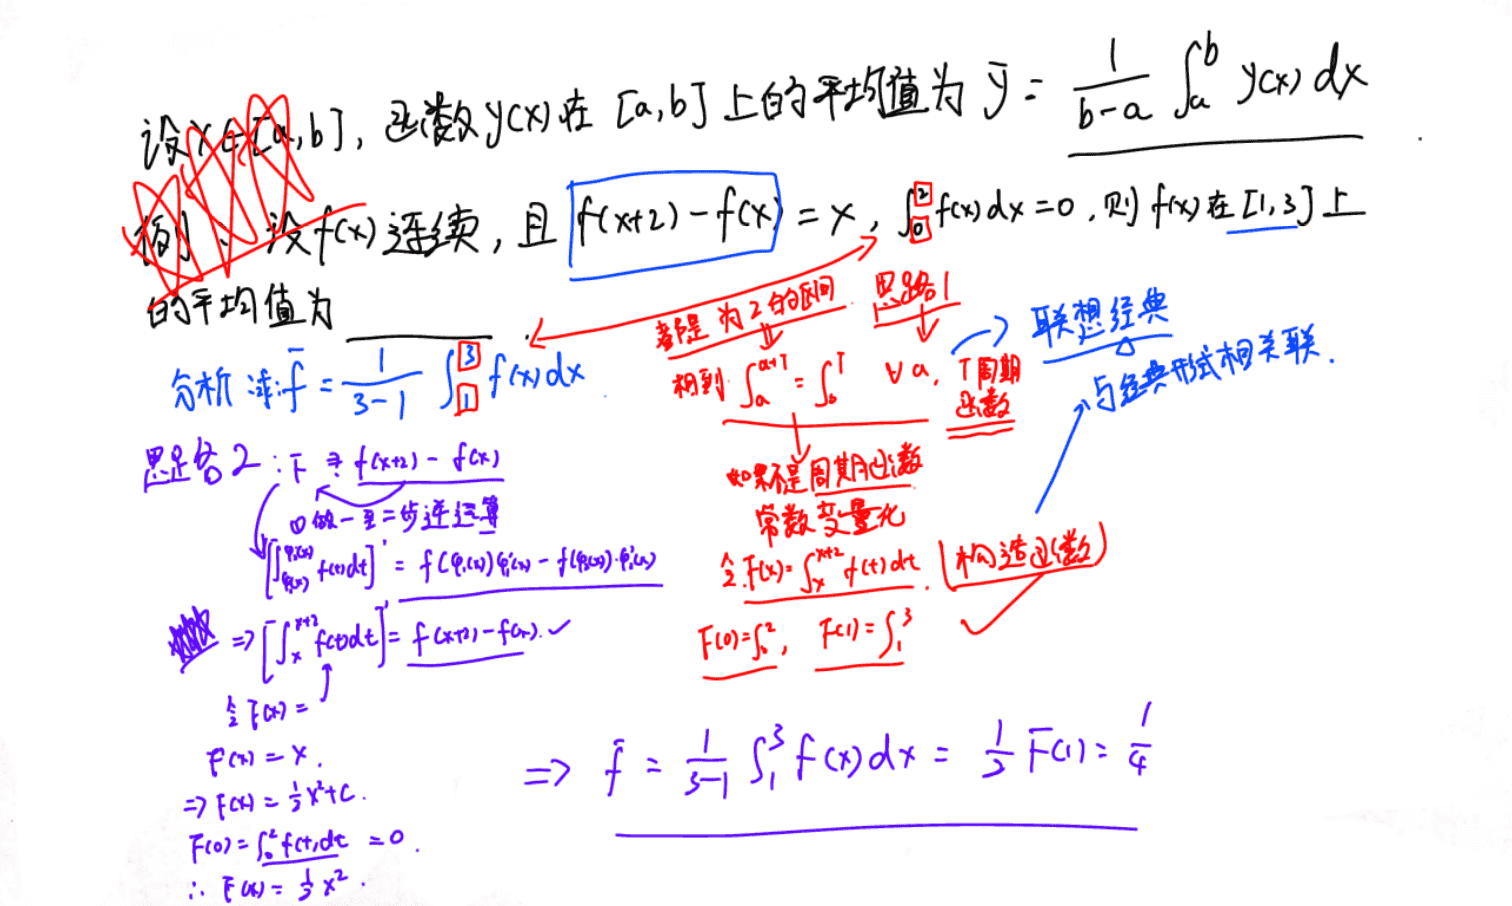 设x∈[a,b], 函数y(x)在[a,b]上的平均值为 ȳ = \frac{1}{b-a} ∫_a^b y(x)dx
例、设f(x)连续, 且 f(x+2)-f(x) = x, ∫_0^2 f(x)dx=0, 则f(x)在[1,3]上
的平均值为 ______ .
分析:求: f̄ = \frac{1}{3-1} ∫_1^3 f(x)dx
都是为2的区间
思路1
想到 ∫_a^{a+T} = ∫_0^T ∀a, T周期函数
联想经典
与经典形式相关联.
如果不是周期函数
常数变量化
令F(x)=∫_x^{x+2} f(t)dt. (构造函数)
F(0)=∫_0^2, F(1)=∫_1^3
思路2: f(x+2)-f(x)
做一至二步逆运算
[∫_{φ_2(x)}^{φ_1(x)} f(t)dt]' = f(φ_1(x))φ_1'(x) - f(φ_2(x))·φ_2'(x)
⇒ [∫_x^{x+2} f(t)dt]' = f(x+2)-f(x). ✓
令F(x)=
F'(x) = x.
⇒ F(x) = \frac{1}{2}x²+C.
F(0)=∫_0^2 f(t)dt = 0.
∴ F(x) = \frac{1}{2}x².
⇒ f̄ = \frac{1}{3-1} ∫_1^3 f(x)dx = \frac{1}{2} F(1) = \frac{1}{4}